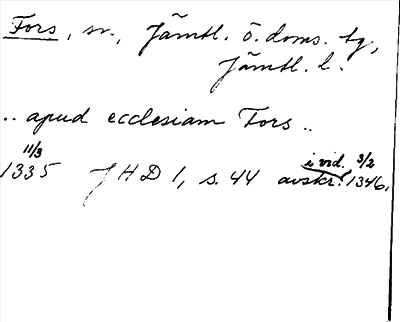 Fors, sn., Jämtl. ö. doms. tg,
Jämtl. l.
.. apud ecclesiam Fors ..
11/3 i vid. 3/2
1335 JHD 1, s. 44 avskr. 1346.